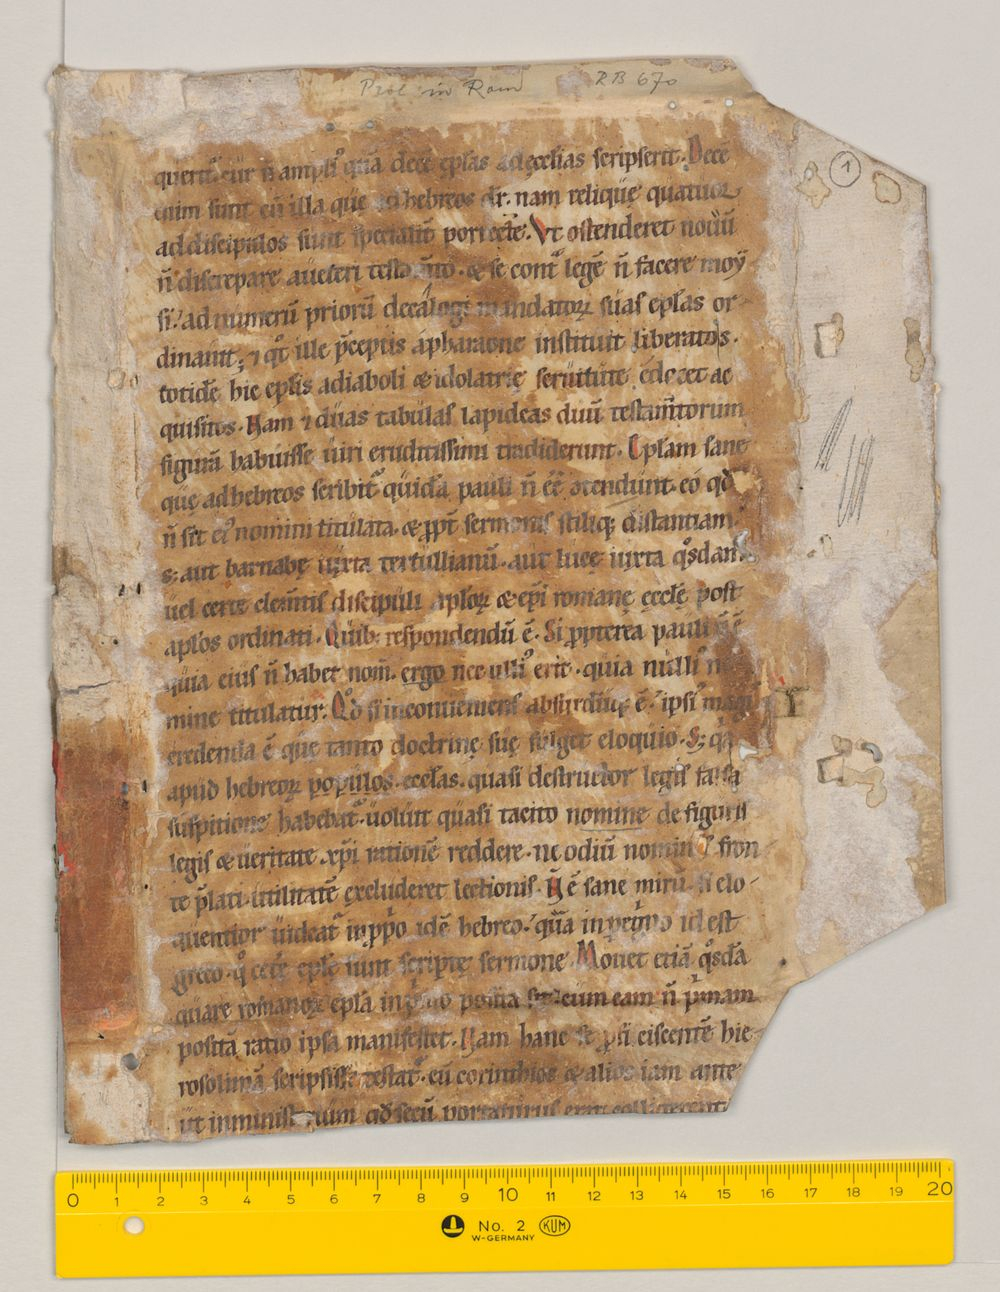 Prol in Rom RB 670
1
querit᷒ cur n̄ ampli᷒ quā decē ep̄las ad ęcclias scripserit. Dece
enim sunt cū illa que ad hebreos dr̄. nam relique quatuor
ad discipulos sunt specialit̄ porrectę. Vt ostenderet nouū
n̄ discrepare a ueteri testam̄to. & se cont᷒ legē n̄ facere moy
si. ad numerū priorū decalogi mandatoꝝ suas ep̄las or
dinauit; ⁊ qͦt ille p̄ceptis a pharaone instituit liberatos.
totidē hic ep̄lis a diaboli & idolatrię seruitute edocet ac
quisitos. Nam ⁊ duas tabulas lapideas duū testam̄torum
figurā habuisse uiri eruditissimi tradiderunt. Ep̄lam sane
quę ad hebreos scribit᷒ quidā pauli n̄ eē ↄtendunt. eo qd̄
n̄ sit ei᷒ nomini titulata. & ꝓpt̄ sermonis stiliq; distantiam.
s; aut barnabę iuxta tertullianū. aut lucę iuxta qͦsdam
uel certe clem̄tis discipuli aplōꝝ & ep̄i romanę eccłę post
aplōs ordinati. Quib; respondendū ē. Si ꝓpterea pauli n̄ ē
quia eius n̄ habet nom̄. ergo nec ulli᷒ erit. quia nulli᷒ no
mine titulatur. Qd̄ si inconueniens absurdūq; ē. ipsi᷒ magi
credenda ē que tanto doctrinę suę fulget eloquio. S; qa
apud hebreoꝝ populos ecclas. quasi destructor legis falsa
suspitione habebat᷒. uoluit quasi tacito nomine de figuris
legis & ueritate xp̄i rationē reddere. ne odiū nominis fron
te p̄lati. utilitatē excluderet lectionis. N̄ ē sane mirū. si elo
quentior uideat᷒ in ꝓpo idē hebreo. quā in pegͥno id est
greco. qͦ ceterę ep̄lę sunt scriptę sermone. Mouet etiā qͦsdā
quare romanoꝝ ep̄la in pͥmo posita sit cum eam n̄ pͥmam
positā ratio ipsa manifestet. Nam hanc se ꝓficiscentē hie
rosolimā scripsisse testat᷒. cū corinthios & alios iam ante
ut ministerium qd̄ secū portaturus erat colligerent
0 1 2 3 4 5 6 7 8 9 10 11 12 13 14 15 16 17 18 19 20
No. 2 KUM
W-GERMANY